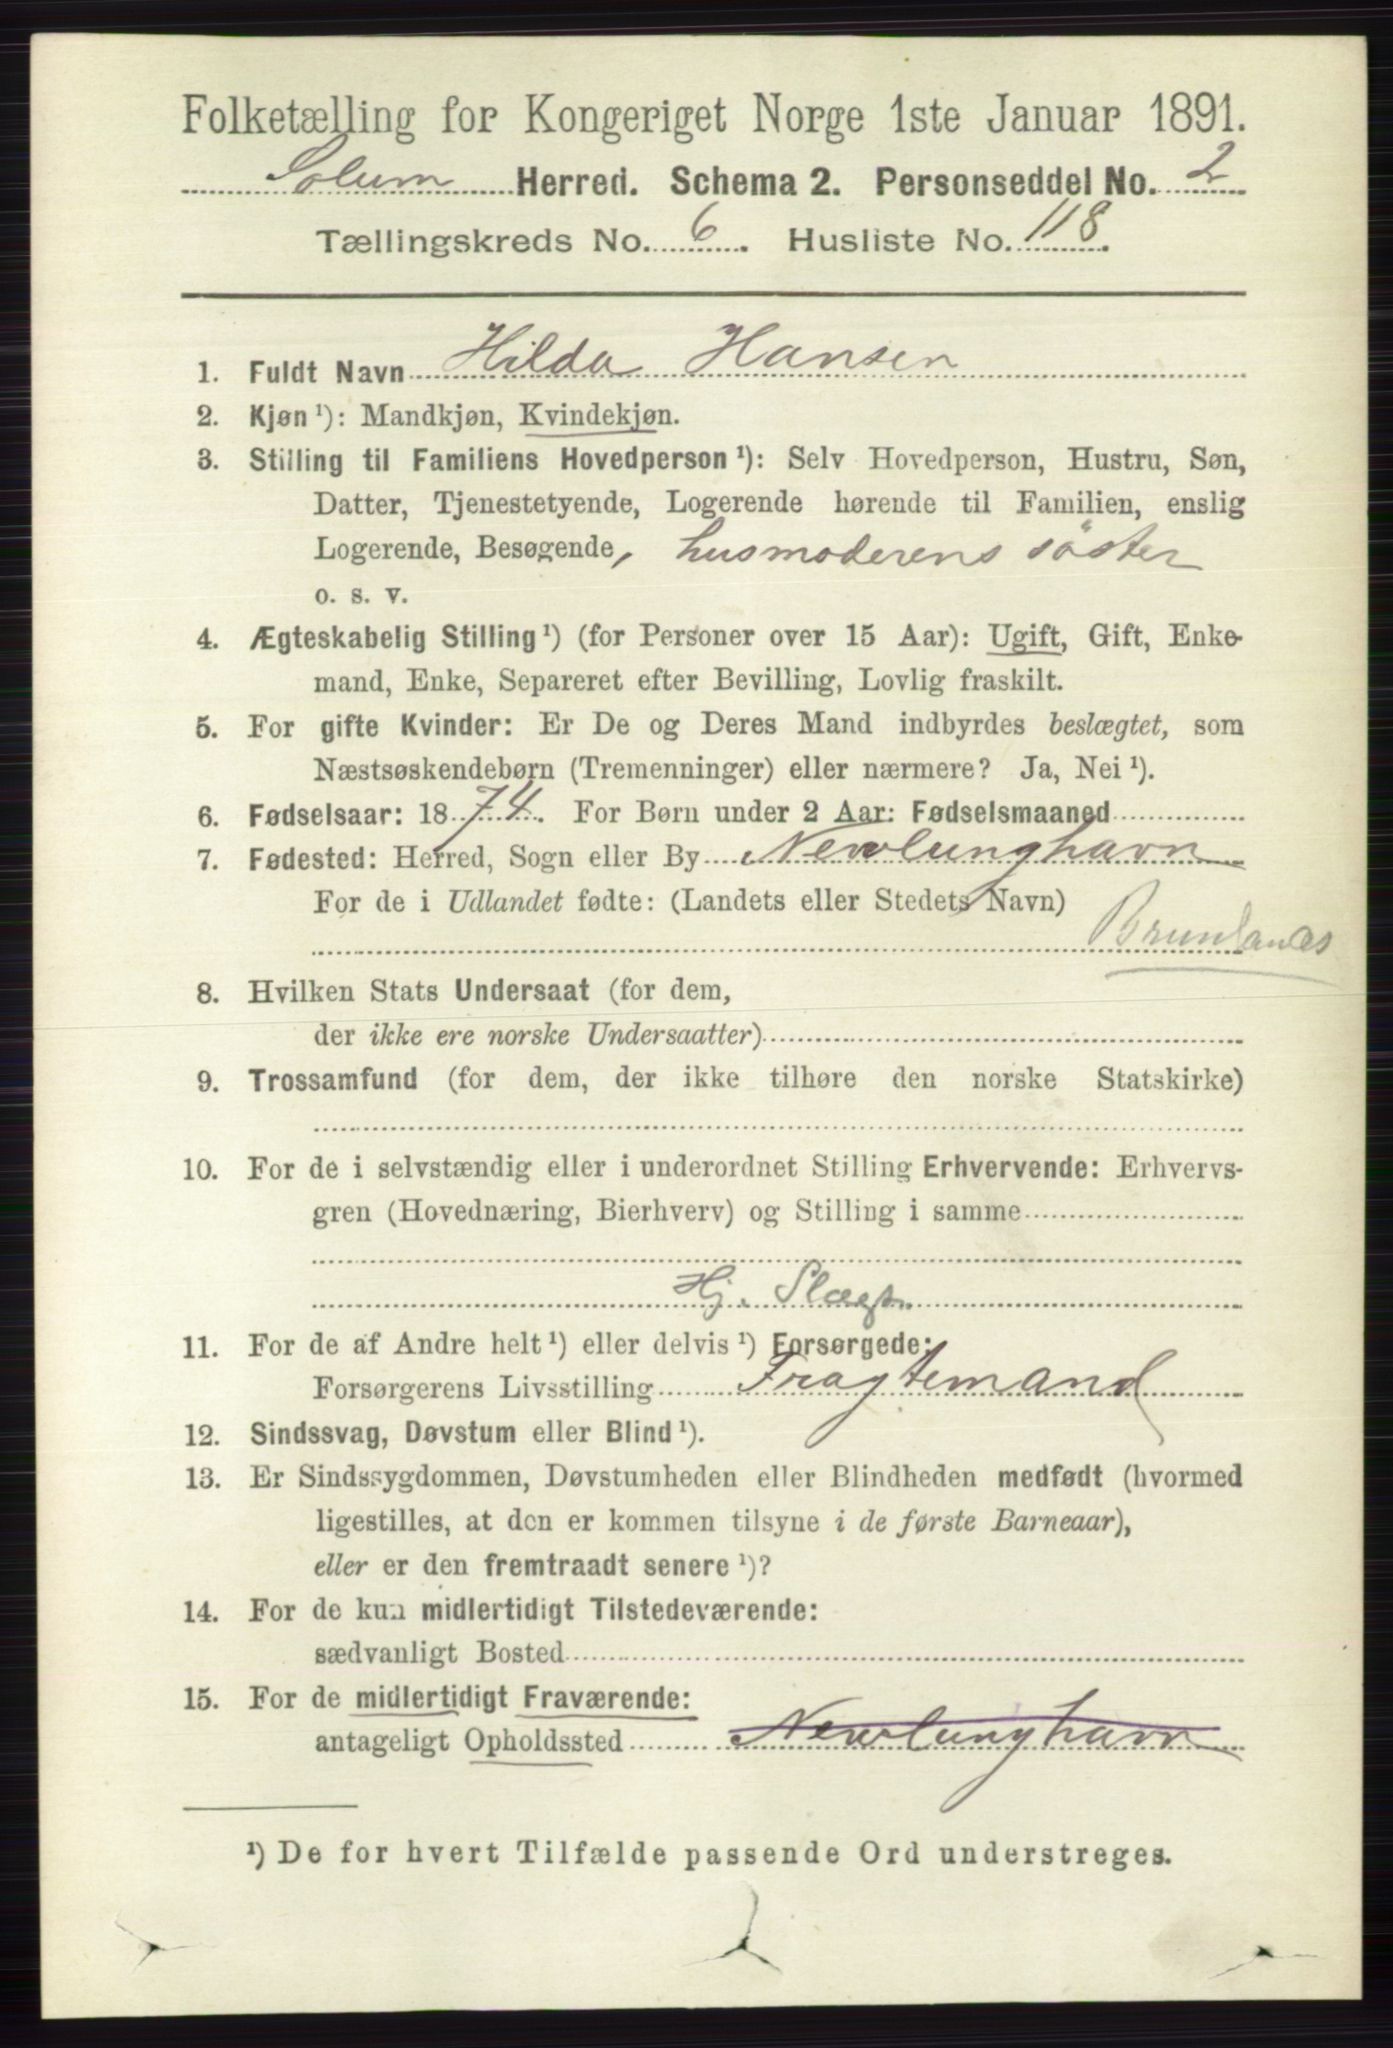 Folketælling for Kongeriget Norge 1ste Januar 1891.
Solum Herred. Schema 2. Personseddel No. 2
Tællingskreds No. 6. Husliste No. 118.
1. Fuldt Navn Hilda Hansen
2. Kjøn ¹): Mandkjøn, Kvindekjøn.
3. Stilling til Familiens Hovedperson ¹): Selv Hovedperson, Hustru, Søn,
Datter, Tjenestetyende, Logerende hørende til Familien, enslig
Logerende, Besøgende, husmoderens söster
o. s. v.
4. Ægteskabelig Stilling ¹) (for Personer over 15 Aar): Ugift, Gift, Enke-
mand, Enke, Separeret efter Bevilling, Lovlig fraskilt.
5. For gifte Kvinder: Er De og Deres Mand indbyrdes beslægtet, som
Næstsøskendebørn (Tremenninger) eller nærmere? Ja, Nei ¹).
6. Fødselsaar: 1874. For Børn under 2 Aar: Fødselsmaaned
7. Fødested: Herred, Sogn eller By Nevlunghavn
For de i Udlandet fødte: (Landets eller Stedets Navn)
Brunlanæs
8. Hvilken Stats Undersaat (for dem,
der ikke ere norske Undersaatter)
9. Trossamfund (for dem, der ikke tilhøre den norske Statskirke)
10. For de i selvstændig eller i underordnet Stilling Erhvervende: Erhvervs-
gren (Hovednæring, Bierhverv) og Stilling i samme
Hj. Slægt.
11. For de af Andre helt ¹) eller delvis ¹) Forsørgede:
Forsørgerens Livsstilling Fragtemand
12. Sindssvag, Døvstum eller Blind ¹).
13. Er Sindssygdommen, Døvstumheden eller Blindheden medfødt (hvormed
ligestilles, at den er kommen tilsyne i de første Barneaar),
eller er den fremtraadt senere ¹)?
14. For de kun midlertidigt Tilstedeværende:
sædvanligt Bosted
15. For de midlertidigt Fraværende:
antageligt Opholdssted Nevlunghavn
¹) De for hvert Tilfælde passende Ord understreges.